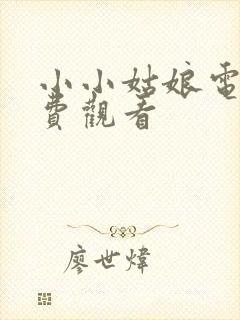 小小姑娘電
費觀看
廖世煒